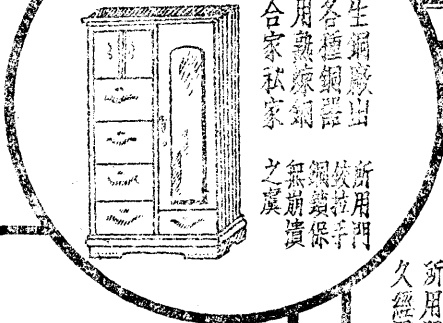 生銅廠出
各種銅器
用熟煉銅
合家私家
所用門
鉸拉手
銅鎖保
無崩潰
之虞
所用
久經